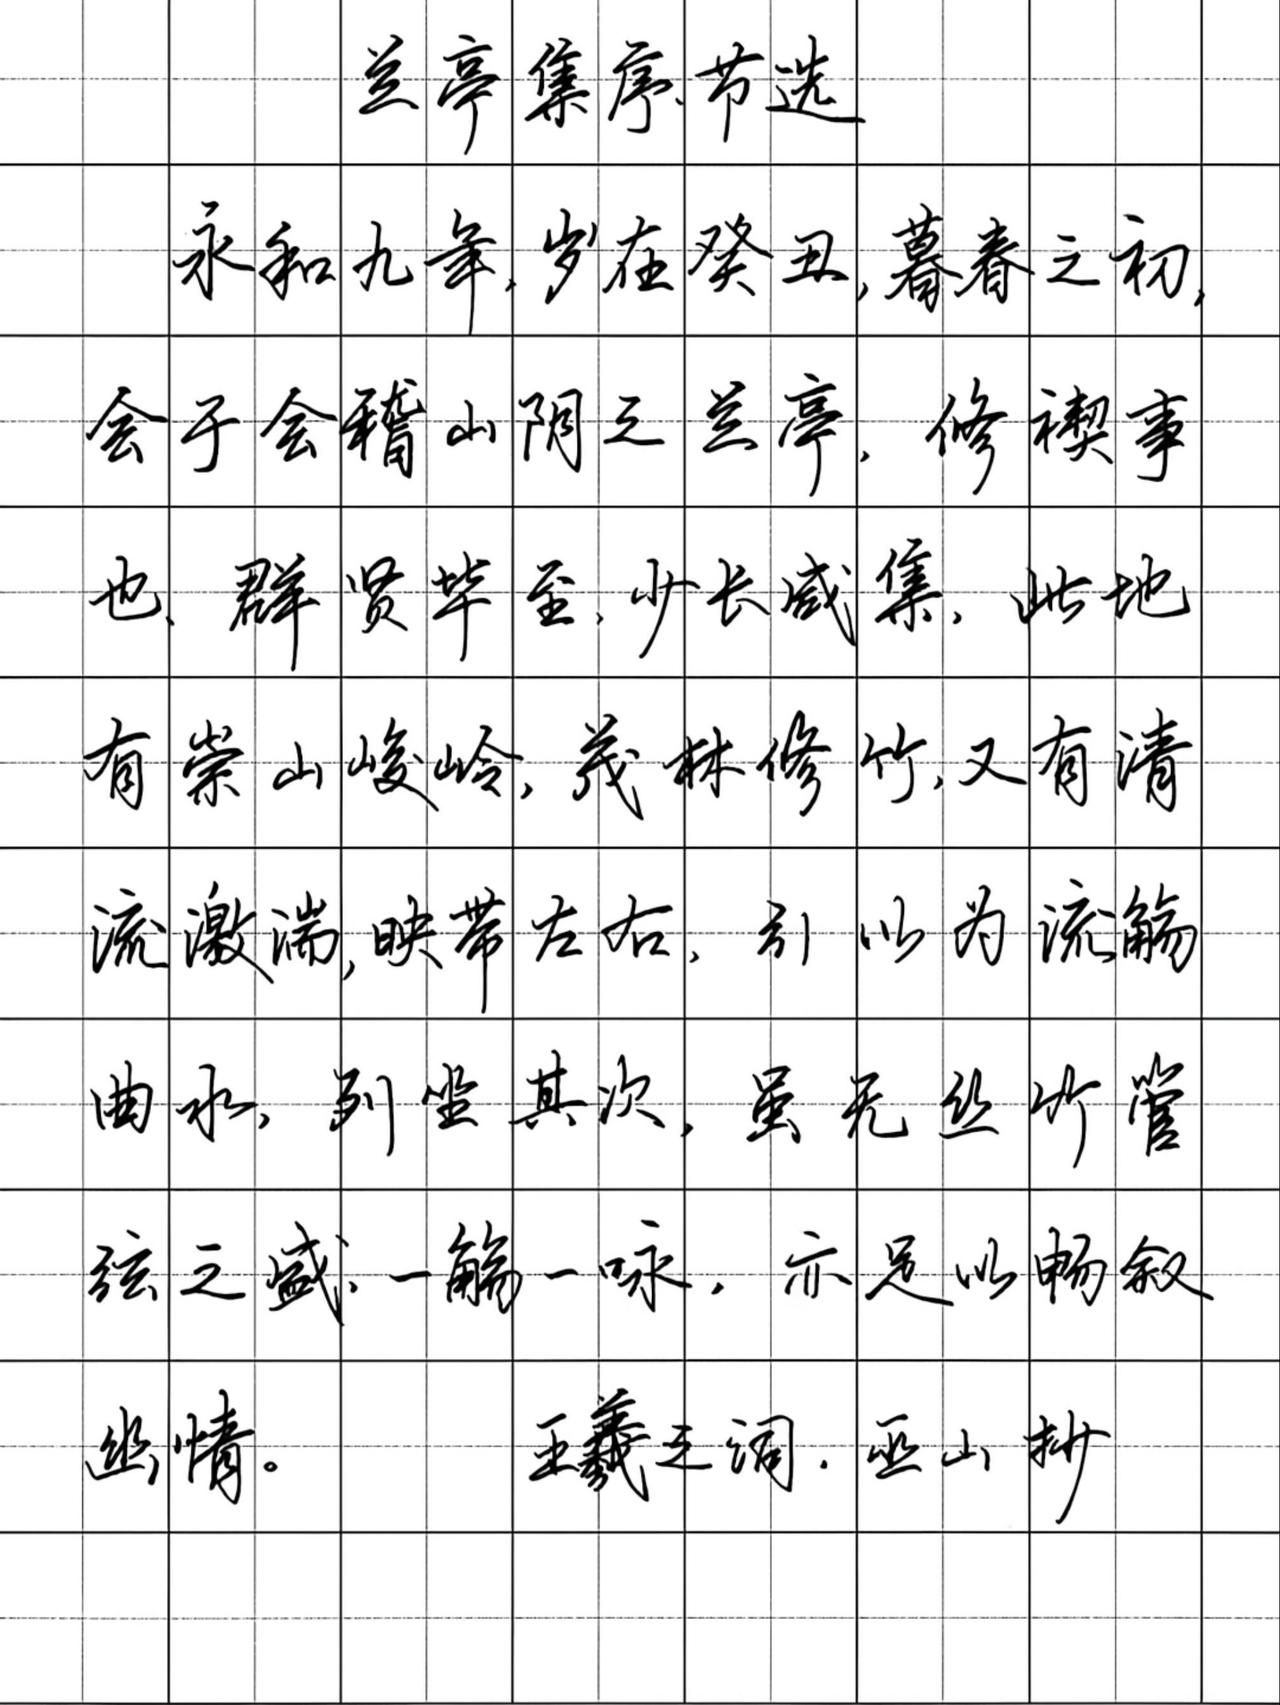 兰亭集序、节选
永和九年,岁在癸丑,暮春之初,
会于会稽山阴之兰亭,修禊事
也,群贤毕至,少长咸集,此地
有崇山峻岭,茂林修竹,又有清
流激湍,映带左右,引以为流觞
曲水,列坐其次,虽无丝竹管
弦之盛,一觞一咏,亦足以畅叙
幽情。 王羲之词.巫山抄